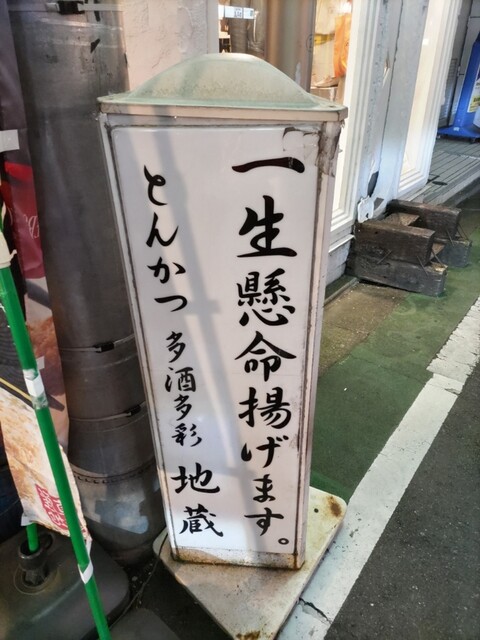 一生懸命揚げます。
とんかつ 多酒多彩 地蔵